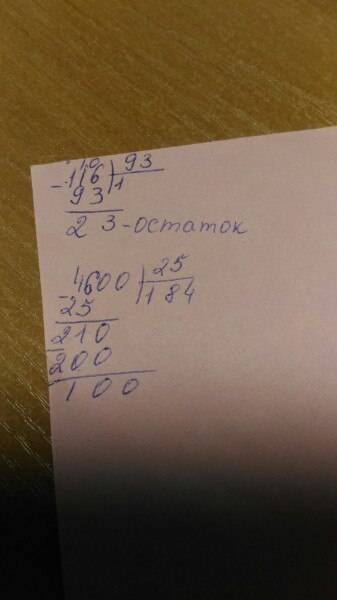 10
- 116 | 93
93 | 1
23 - остаток
- 4600 | 25
25 | 184
- 210
200
100